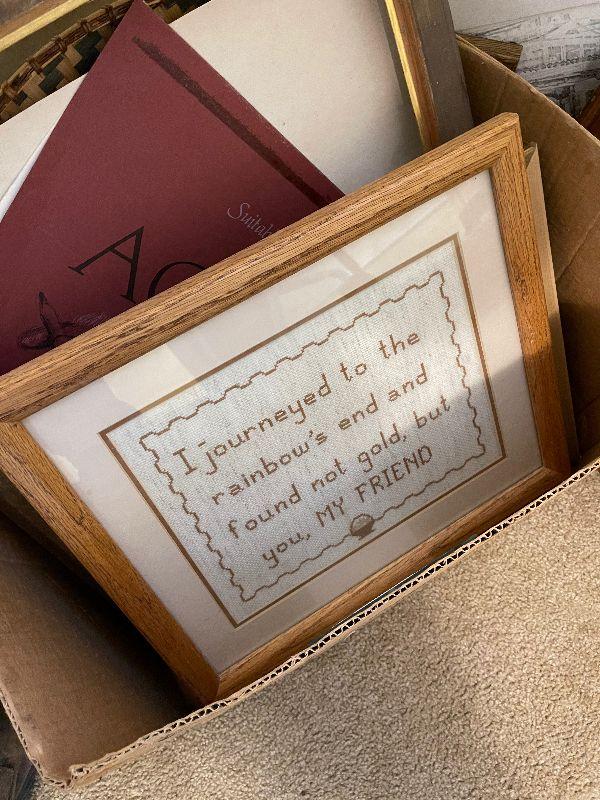 I journeyed to the
rainbow's end and
found not gold, but
you, MY FRIEND